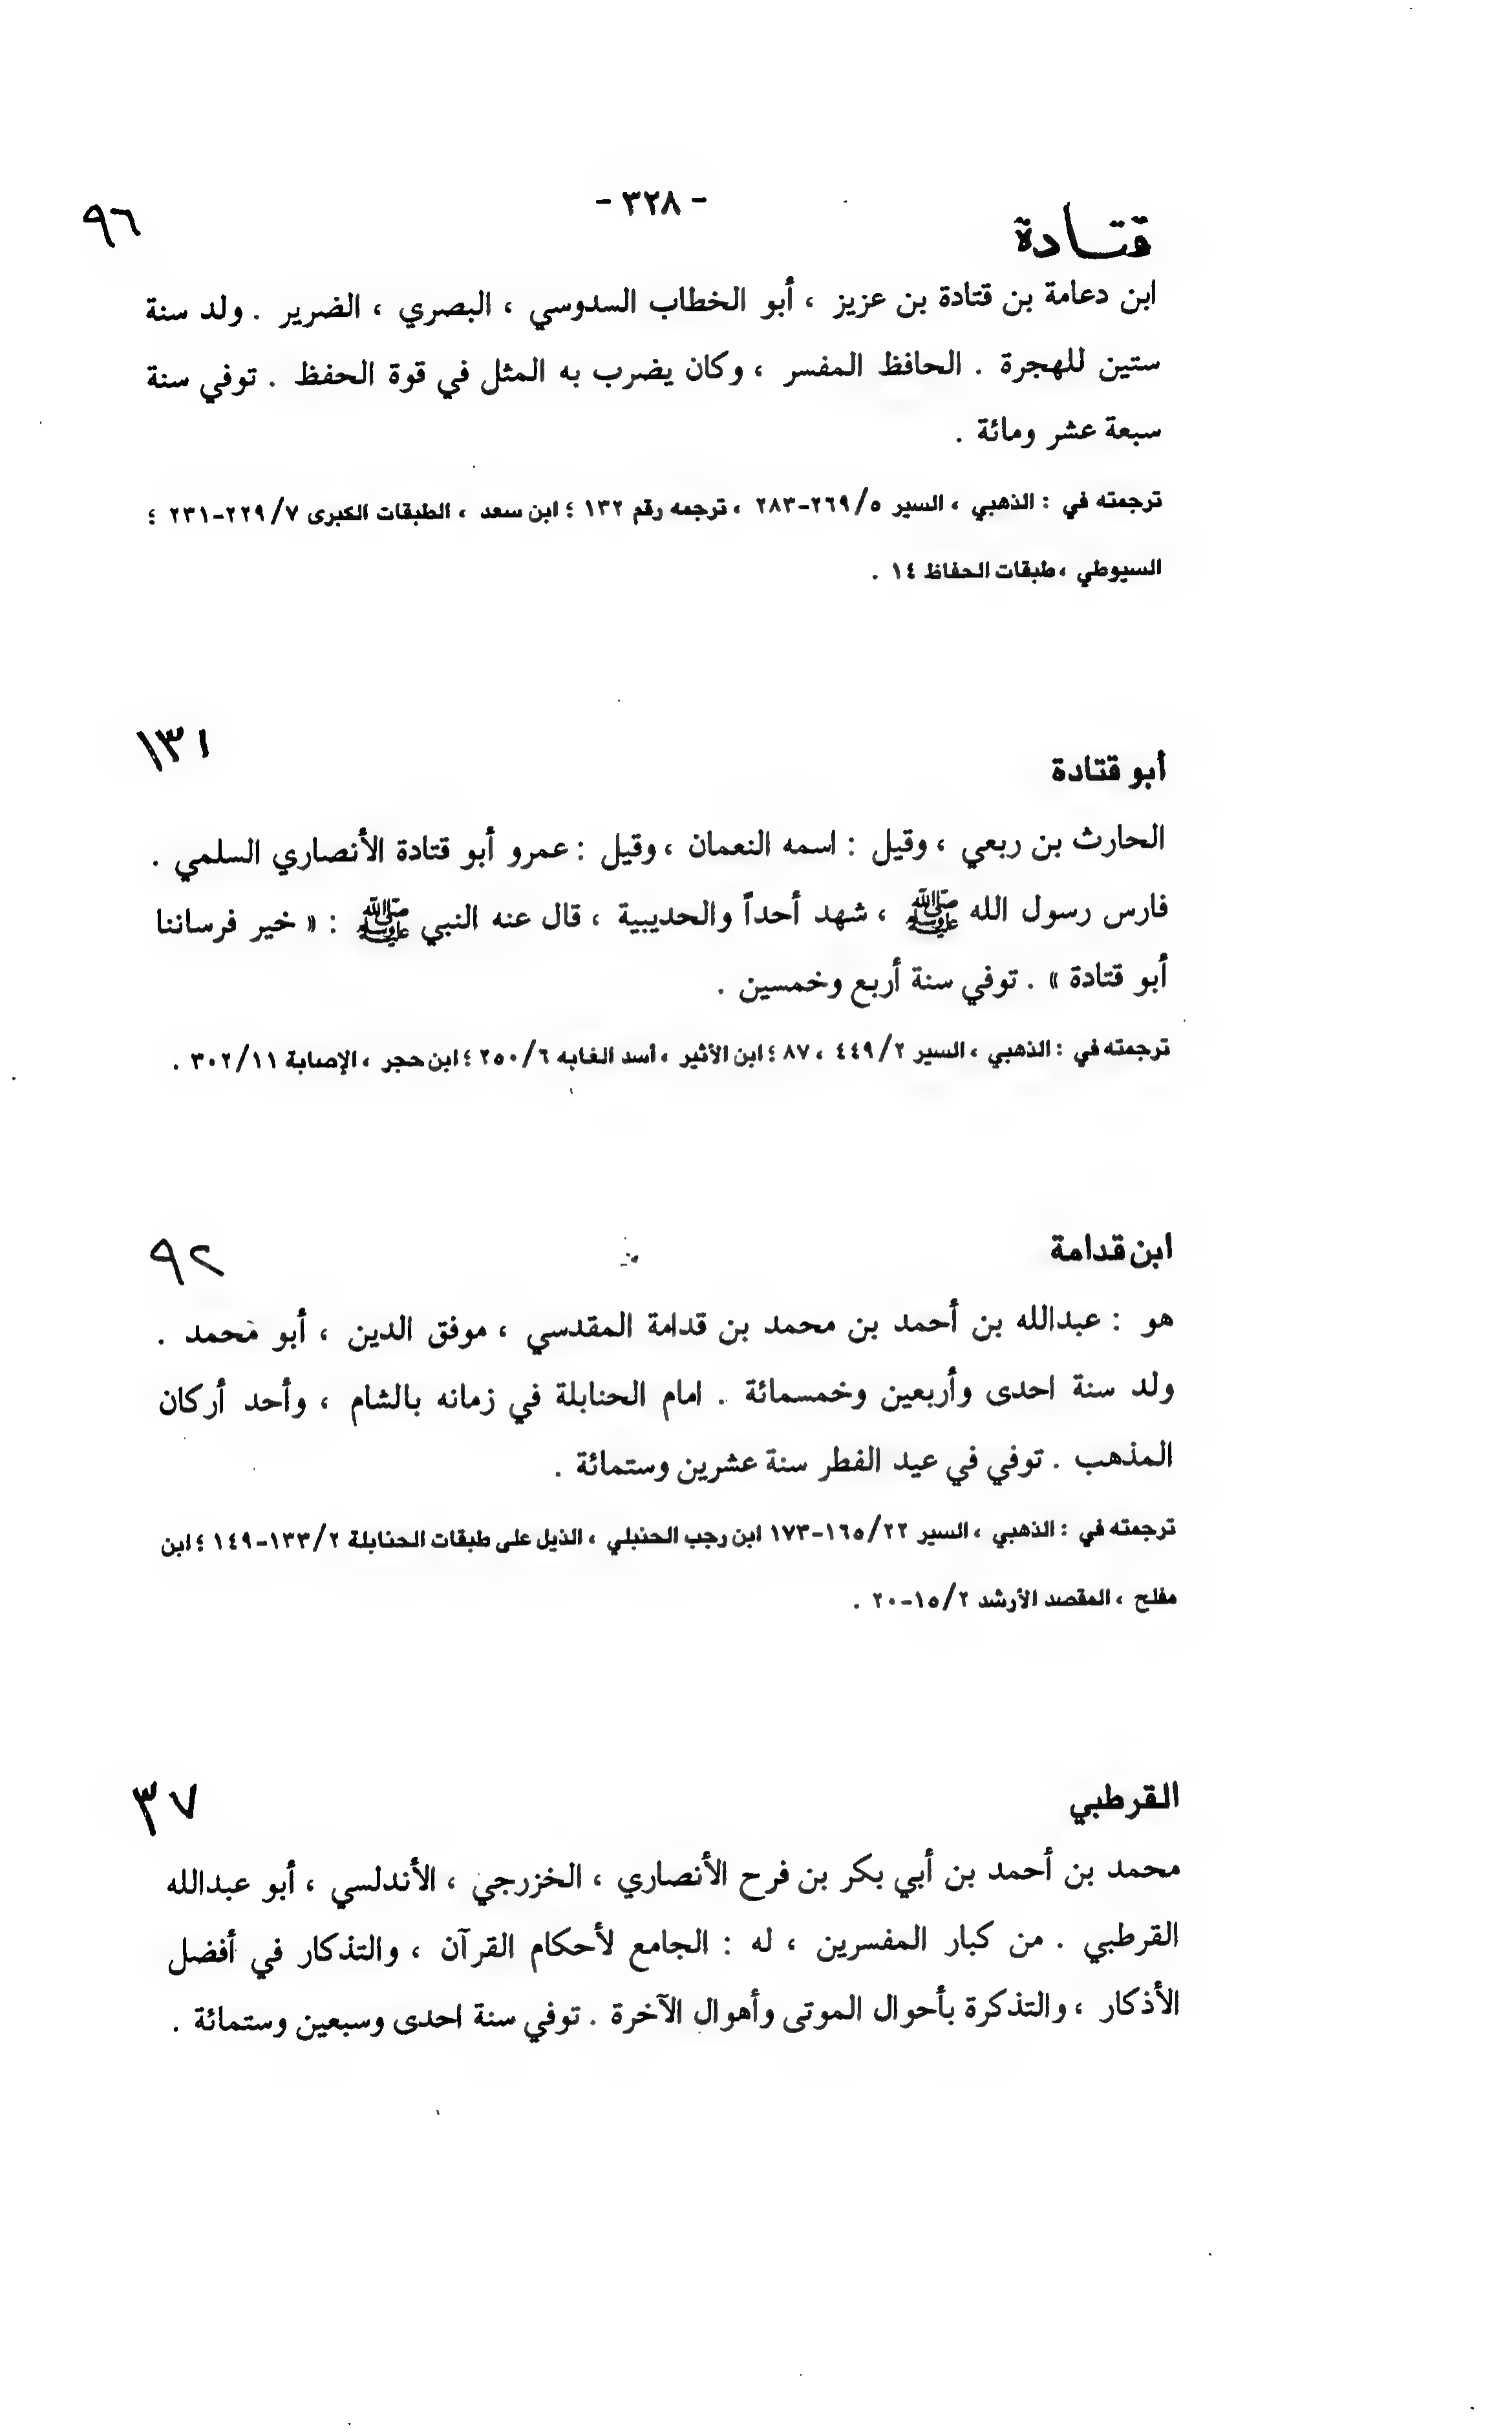 - ٣٢٨ -
قتـــادة ٩٦
ابن دعامة بن قتادة بن عزيز ، أبو الخطاب السدوسي ، البصري ، الضرير . ولد سنة
ستين للهجرة . الحافظ المفسر ، وكان يضرب به المثل في قوة الحفظ . توفي سنة
سبعة عشر ومائة .
ترجمته في : الذهبي ، السير ٥/ ٢٦٩-٢٨٣ ، ترجمه رقم ١٣٢ ؛ ابن سعد ، الطبقات الكبرى ٧/ ٢٢٩-٢٣١ ؛
السيوطي ، طبقات الحفاظ ١٤ .
أبو قتادة ١٣١
الحارث بن ربعي ، وقيل : اسمه النعمان ، وقيل : عمرو أبو قتادة الأنصاري السلمي .
فارس رسول الله ﷺ ، شهد أحداً والحديبية ، قال عنه النبي ﷺ : « خير فرساننا
أبو قتادة » . توفي سنة أربع وخمسين .
ترجمته في : الذهبي ، السير ٢/ ٤٤٩ ، ٨٧ ؛ ابن الأثير ، أسد الغابه ٦/ ٢٥٠ ؛ ابن حجر ، الإصابة ١١/ ٣٠٢ .
ابن قدامة ٩٢
هو : عبدالله بن أحمد بن محمد بن قدامة المقدسي ، موفق الدين ، أبو محمد .
ولد سنة احدى وأربعين وخمسمائة . امام الحنابلة في زمانه بالشام ، وأحد أركان
المذهب . توفي في عيد الفطر سنة عشرين وستمائة .
ترجمته في : الذهبي ، السير ٢٢/ ١٦٥-١٧٣ ابن رجب الحنبلي ، الذيل على طبقات الحنابلة ٢/ ١٣٣-١٤٩ ؛ ابن
مفلح ، المقصد الأرشد ٢/ ١٥-٢٠ .
القرطبي ٣٧
محمد بن أحمد بن أبي بكر بن فرح الأنصاري ، الخزرجي ، الأندلسي ، أبو عبدالله
القرطبي . من كبار المفسرين ، له : الجامع لأحكام القرآن ، والتذكار في أفضل
الأذكار ، والتذكرة بأحوال الموتى وأهوال الآخرة . توفي سنة احدى وسبعين وستمائة .